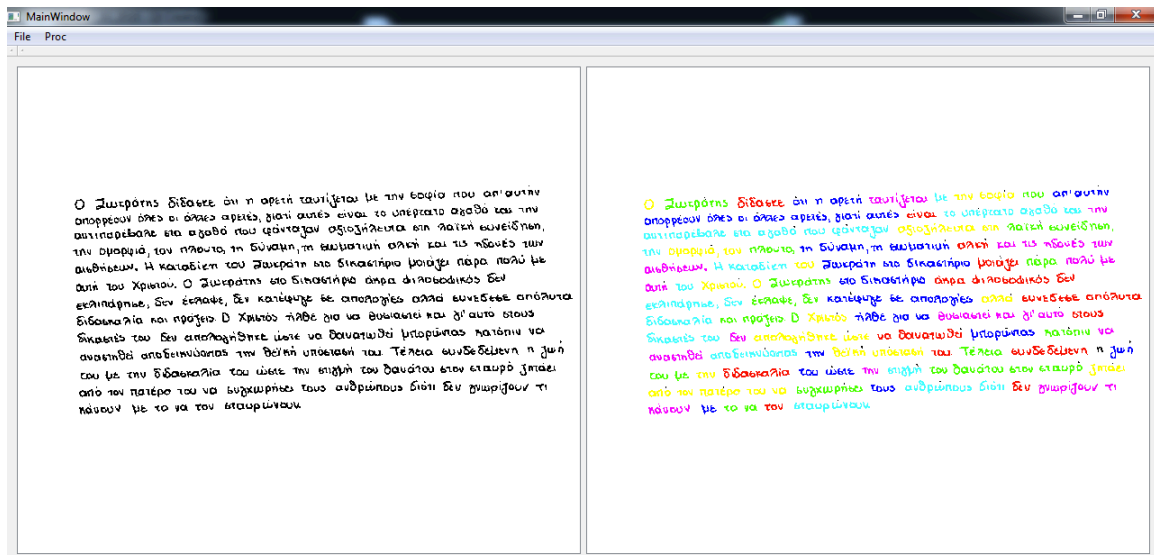 MainWindow
File Proc
Ο Σωκράτης δίδασκε ότι η αρετή ταυτίζεται με την σοφία που απ'αυτήν
απορρέουν όλες οι άλλες αρετές, γιατί αυτές είναι το υπέρτατο αγαθό και την
αντιπαρέβαλε στα αγαθά που φάνταζαν αξιοζήλευτα στη λαϊκή συνείδηση,
την ομορφιά, τον πλούτο, τη δύναμη, τη σωματική αλκή και τις ηδονές των
αισθήσεων. Η καταδίκη του Σωκράτη στο δικαστήριο μοιάζει πάρα πολύ με
αυτή του Χριστού. Ο Σωκράτης στο δικαστήριο άκρα φιλοσοφικός δεν
εκλιπάρησε, δεν έκλαψε, δεν κατέφυγε σε απολογίες αλλά συνέδεσε απόλυτα
διδασκαλία και πράξεις. Ο Χριστός ήλθε για να θυσιαστεί και γι'αυτό στους
δικαστές του δεν απολογήθηκε ώστε να θανατωθεί μπορώντας κατόπιν να
αναστηθεί αποδεικνύοντας την θεϊκή υπόστασή του. Τέλεια συνδεδεμένη η ζωή
του με την διδασκαλία του ώστε την στιγμή του θανάτου στον σταυρό ζητάει
από τον πατέρα του να συγχωρήσει τους ανθρώπους διότι δεν γνωρίζουν τι
κάνουν με το να τον σταυρώνουν.
Ο Σωκράτης δίδασκε ότι η αρετή ταυτίζεται με την σοφία που απ'αυτήν
απορρέουν όλες οι άλλες αρετές, γιατί αυτές είναι το υπέρτατο αγαθό και την
αντιπαρέβαλε στα αγαθά που φάνταζαν αξιοζήλευτα στη λαϊκή συνείδηση,
την ομορφιά, τον πλούτο, τη δύναμη, τη σωματική αλκή και τις ηδονές των
αισθήσεων. Η καταδίκη του Σωκράτη στο δικαστήριο μοιάζει πάρα πολύ με
αυτή του Χριστού. Ο Σωκράτης στο δικαστήριο άκρα φιλοσοφικός δεν
εκλιπάρησε, δεν έκλαψε, δεν κατέφυγε σε απολογίες αλλά συνέδεσε απόλυτα
διδασκαλία και πράξεις. Ο Χριστός ήλθε για να θυσιαστεί και γι'αυτό στους
δικαστές του δεν απολογήθηκε ώστε να θανατωθεί μπορώντας κατόπιν να
αναστηθεί αποδεικνύοντας την θεϊκή υπόστασή του. Τέλεια συνδεδεμένη η ζωή
του με την διδασκαλία του ώστε την στιγμή του θανάτου στον σταυρό ζητάει
από τον πατέρα του να συγχωρήσει τους ανθρώπους διότι δεν γνωρίζουν τι
κάνουν με το να τον σταυρώνουν.